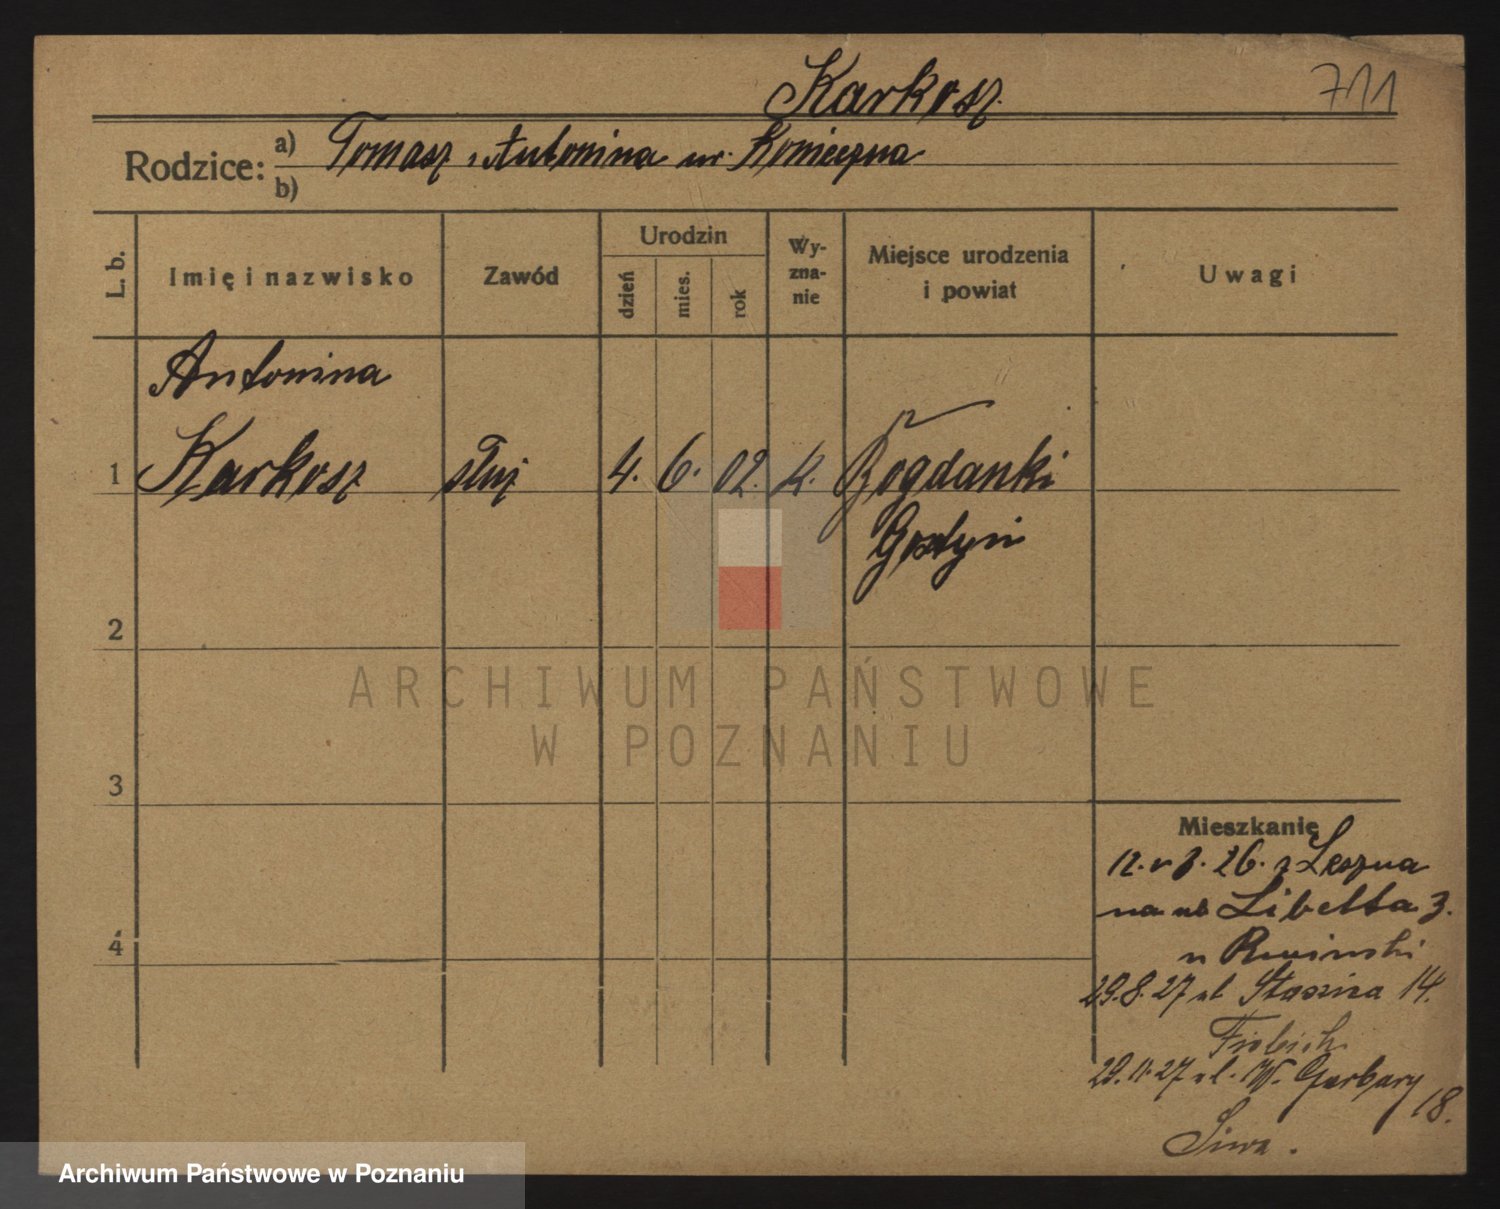 Karkosz
711
Rodzice: a) Tomasz i Antonina ur. Konieczna
b)
L. b.
Imię i nazwisko
Zawód
Urodzin
dzień
mies.
rok
Wy-
zna-
nie
Miejsce urodzenia
i powiat
Uwagi
Antonina
1 Karkosz służ 4. 6. 02. k. Bogdanki
Gostyń
2
3
4
ARCHIWUM PAŃSTWOWE
W POZNANIU
Mieszkanie
12. 26. z Leszna
na ul Libelta 3.
u
29.8.27 ul Staszica 14.
29.11.27 ul. W. Garbary 18.
Siwa.
Archiwum Państwowe w Poznaniu